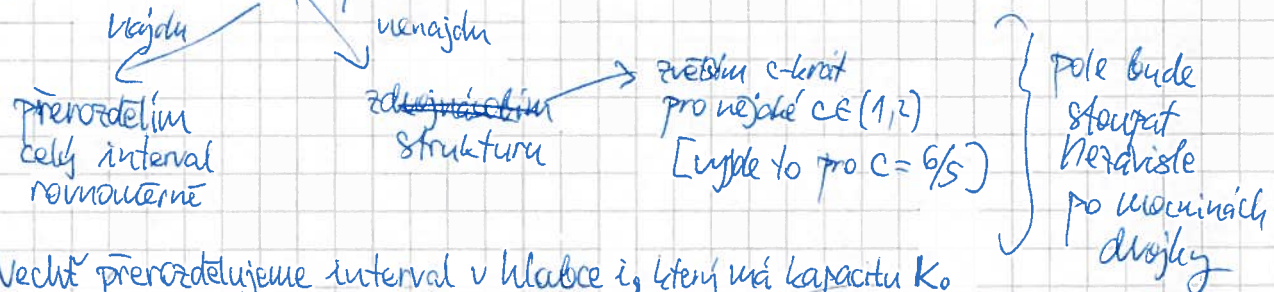 najdu
nenajdu
přerozdělím
celý interval
rovnoměrně
zdvojnásobím
strukturu
zvětším c-krát
pro nějaké c∈(1,2)
[vyjde to pro c = 6/5]
pole bude
stoupat
nezávisle
po mocninách
dvojky
Nechť přerozdělujeme interval v hloubce i, který má kapacitu K.